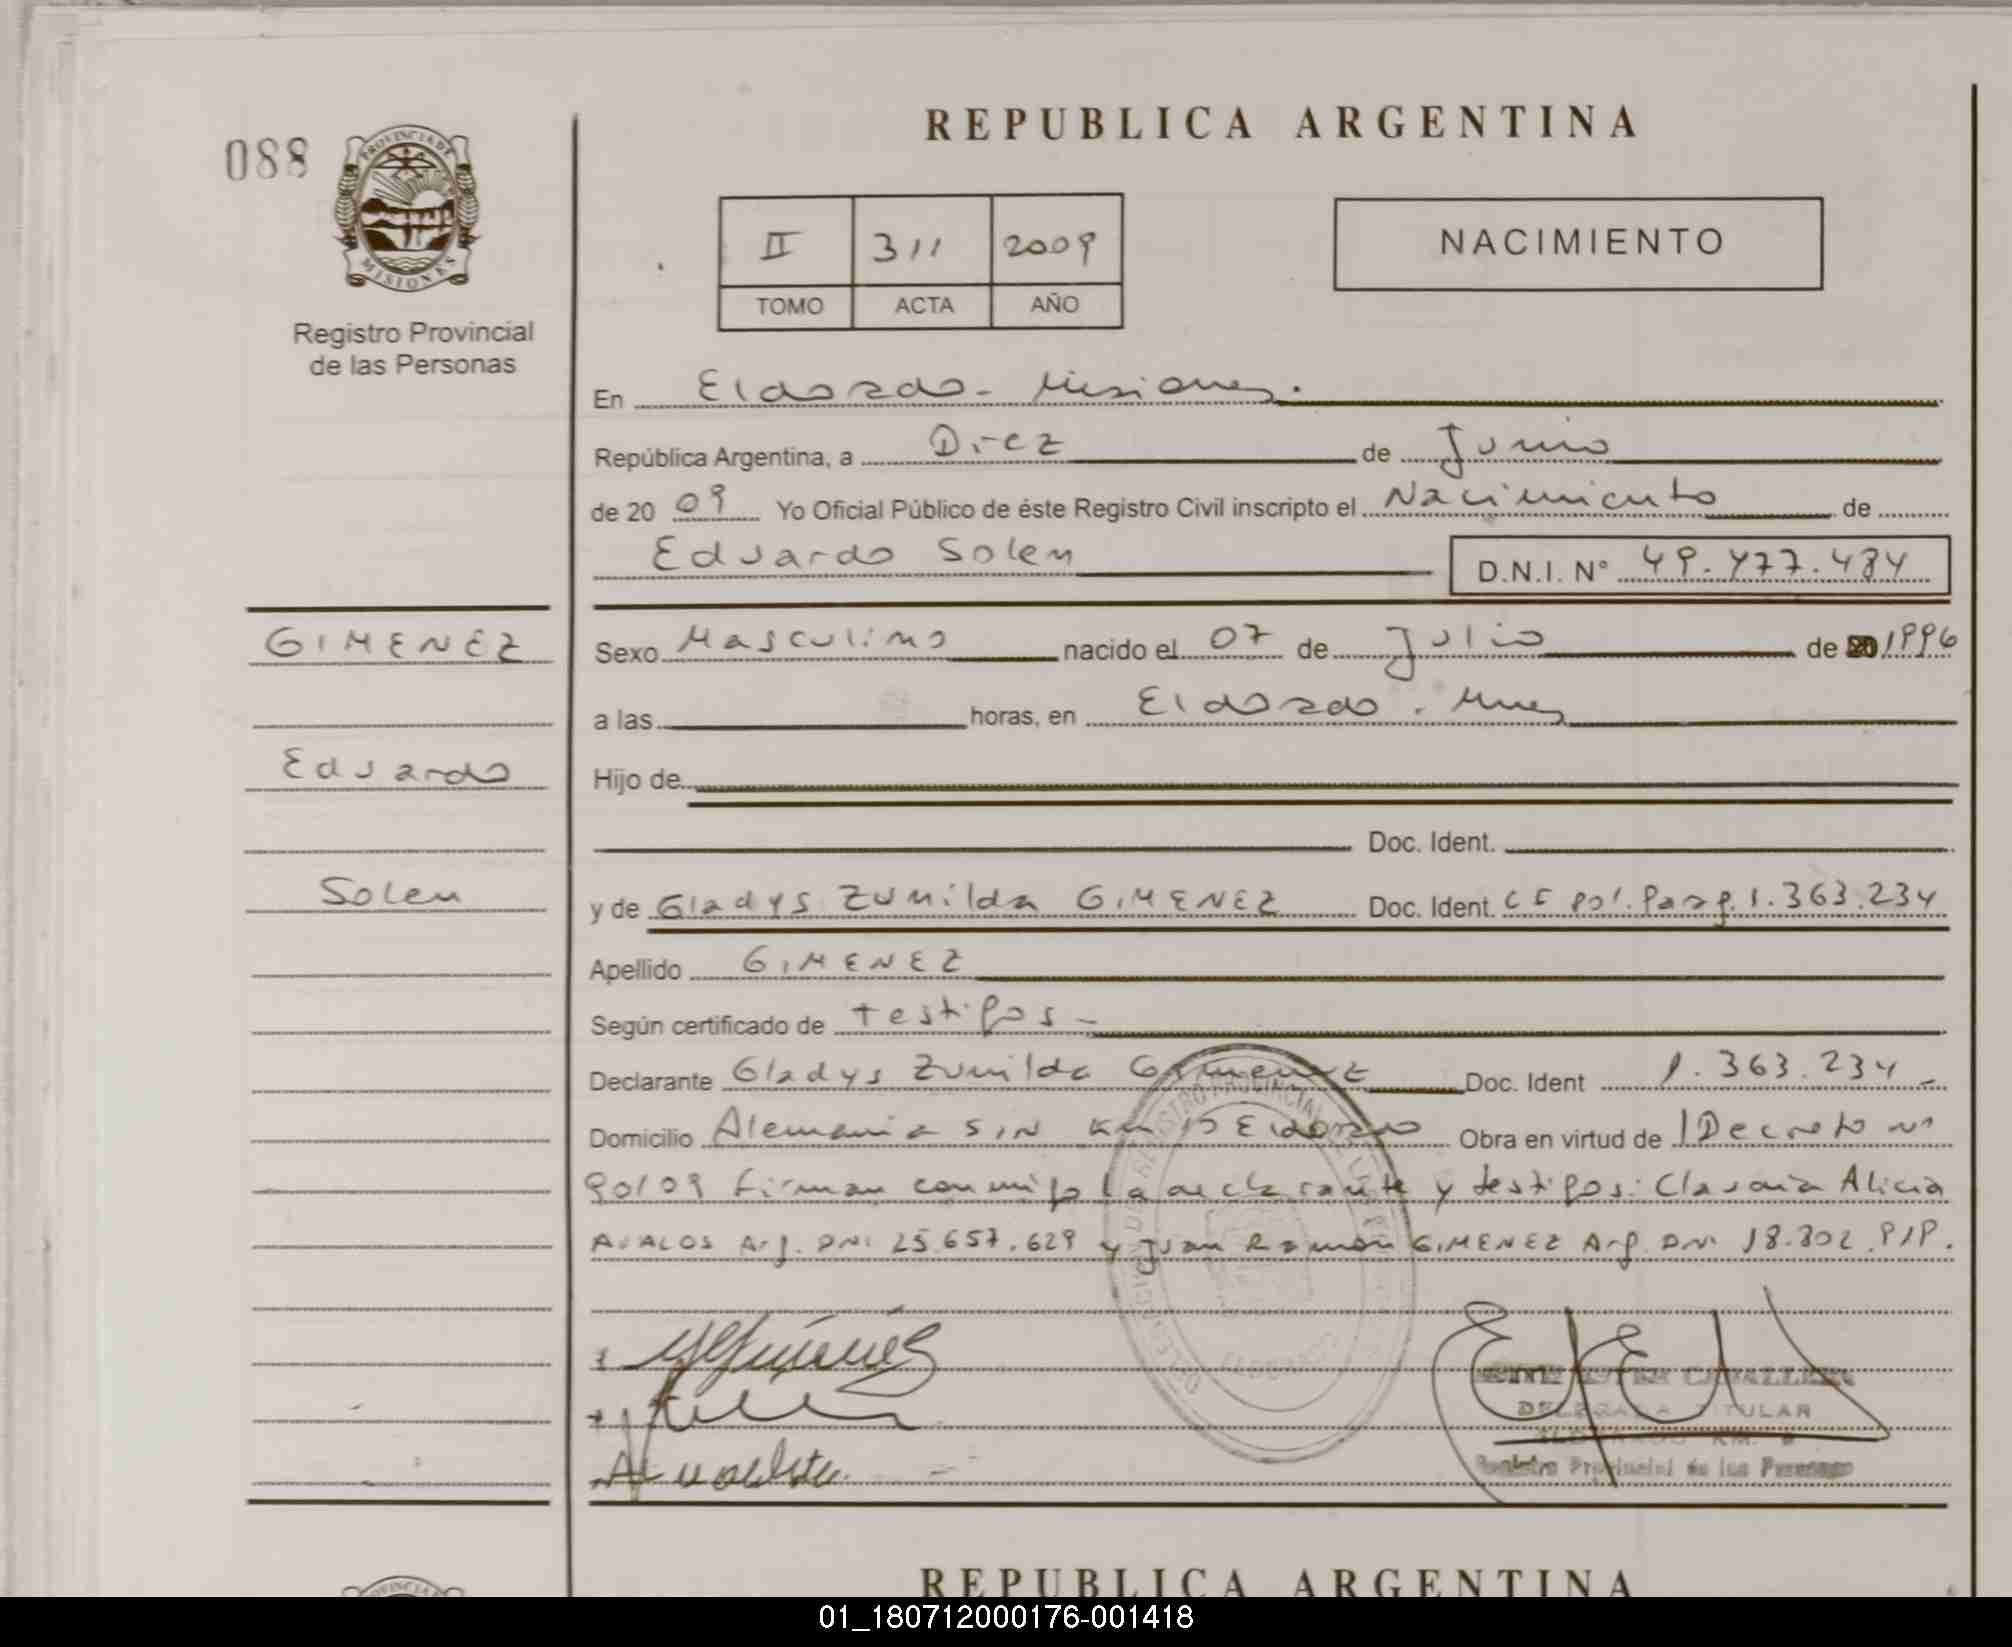 REPUBLICA ARGENTINA
088
PROVINCIA DE
MISIONES
Registro Provincial
de las Personas
II 311 2009
TOMO ACTA AÑO
NACIMIENTO
En Eldorado - Misiones.
República Argentina, a Diez de Junio
de 20 09 Yo Oficial Público de éste Registro Civil inscripto el Nacimiento de
Eduardo Solen D.N.I. N° 49.477.484
GIMENEZ
Sexo Masculino nacido el 07 de Julio de 20 1996
a las horas, en Eldorado - Mnes
Eduardo
Hijo de
Doc. Ident.
Solen
y de Gladys Zunilda GIMENEZ Doc. Ident. CI Pol. Parag. 1.363.234
Apellido GIMENEZ
Según certificado de testigos -
Declarante Gladys Zunilda Gimenez Doc. Ident 1.363.234 -
Domicilio Alemania S/N Km Eldorado Obra en virtud de Decreto Nº
90/09 Firman conmigo la declarante y testigos: Alicia
AVALOS Arg. DNI 25.657.629 y Juan Ramon GIMENEZ Arg. DNI 18.802.919.
DELEGADA TITULAR
ELDORADO KM.
Registro Provincial de las Personas
REPUBLICA ARGENTINA
01_180712000176-001418